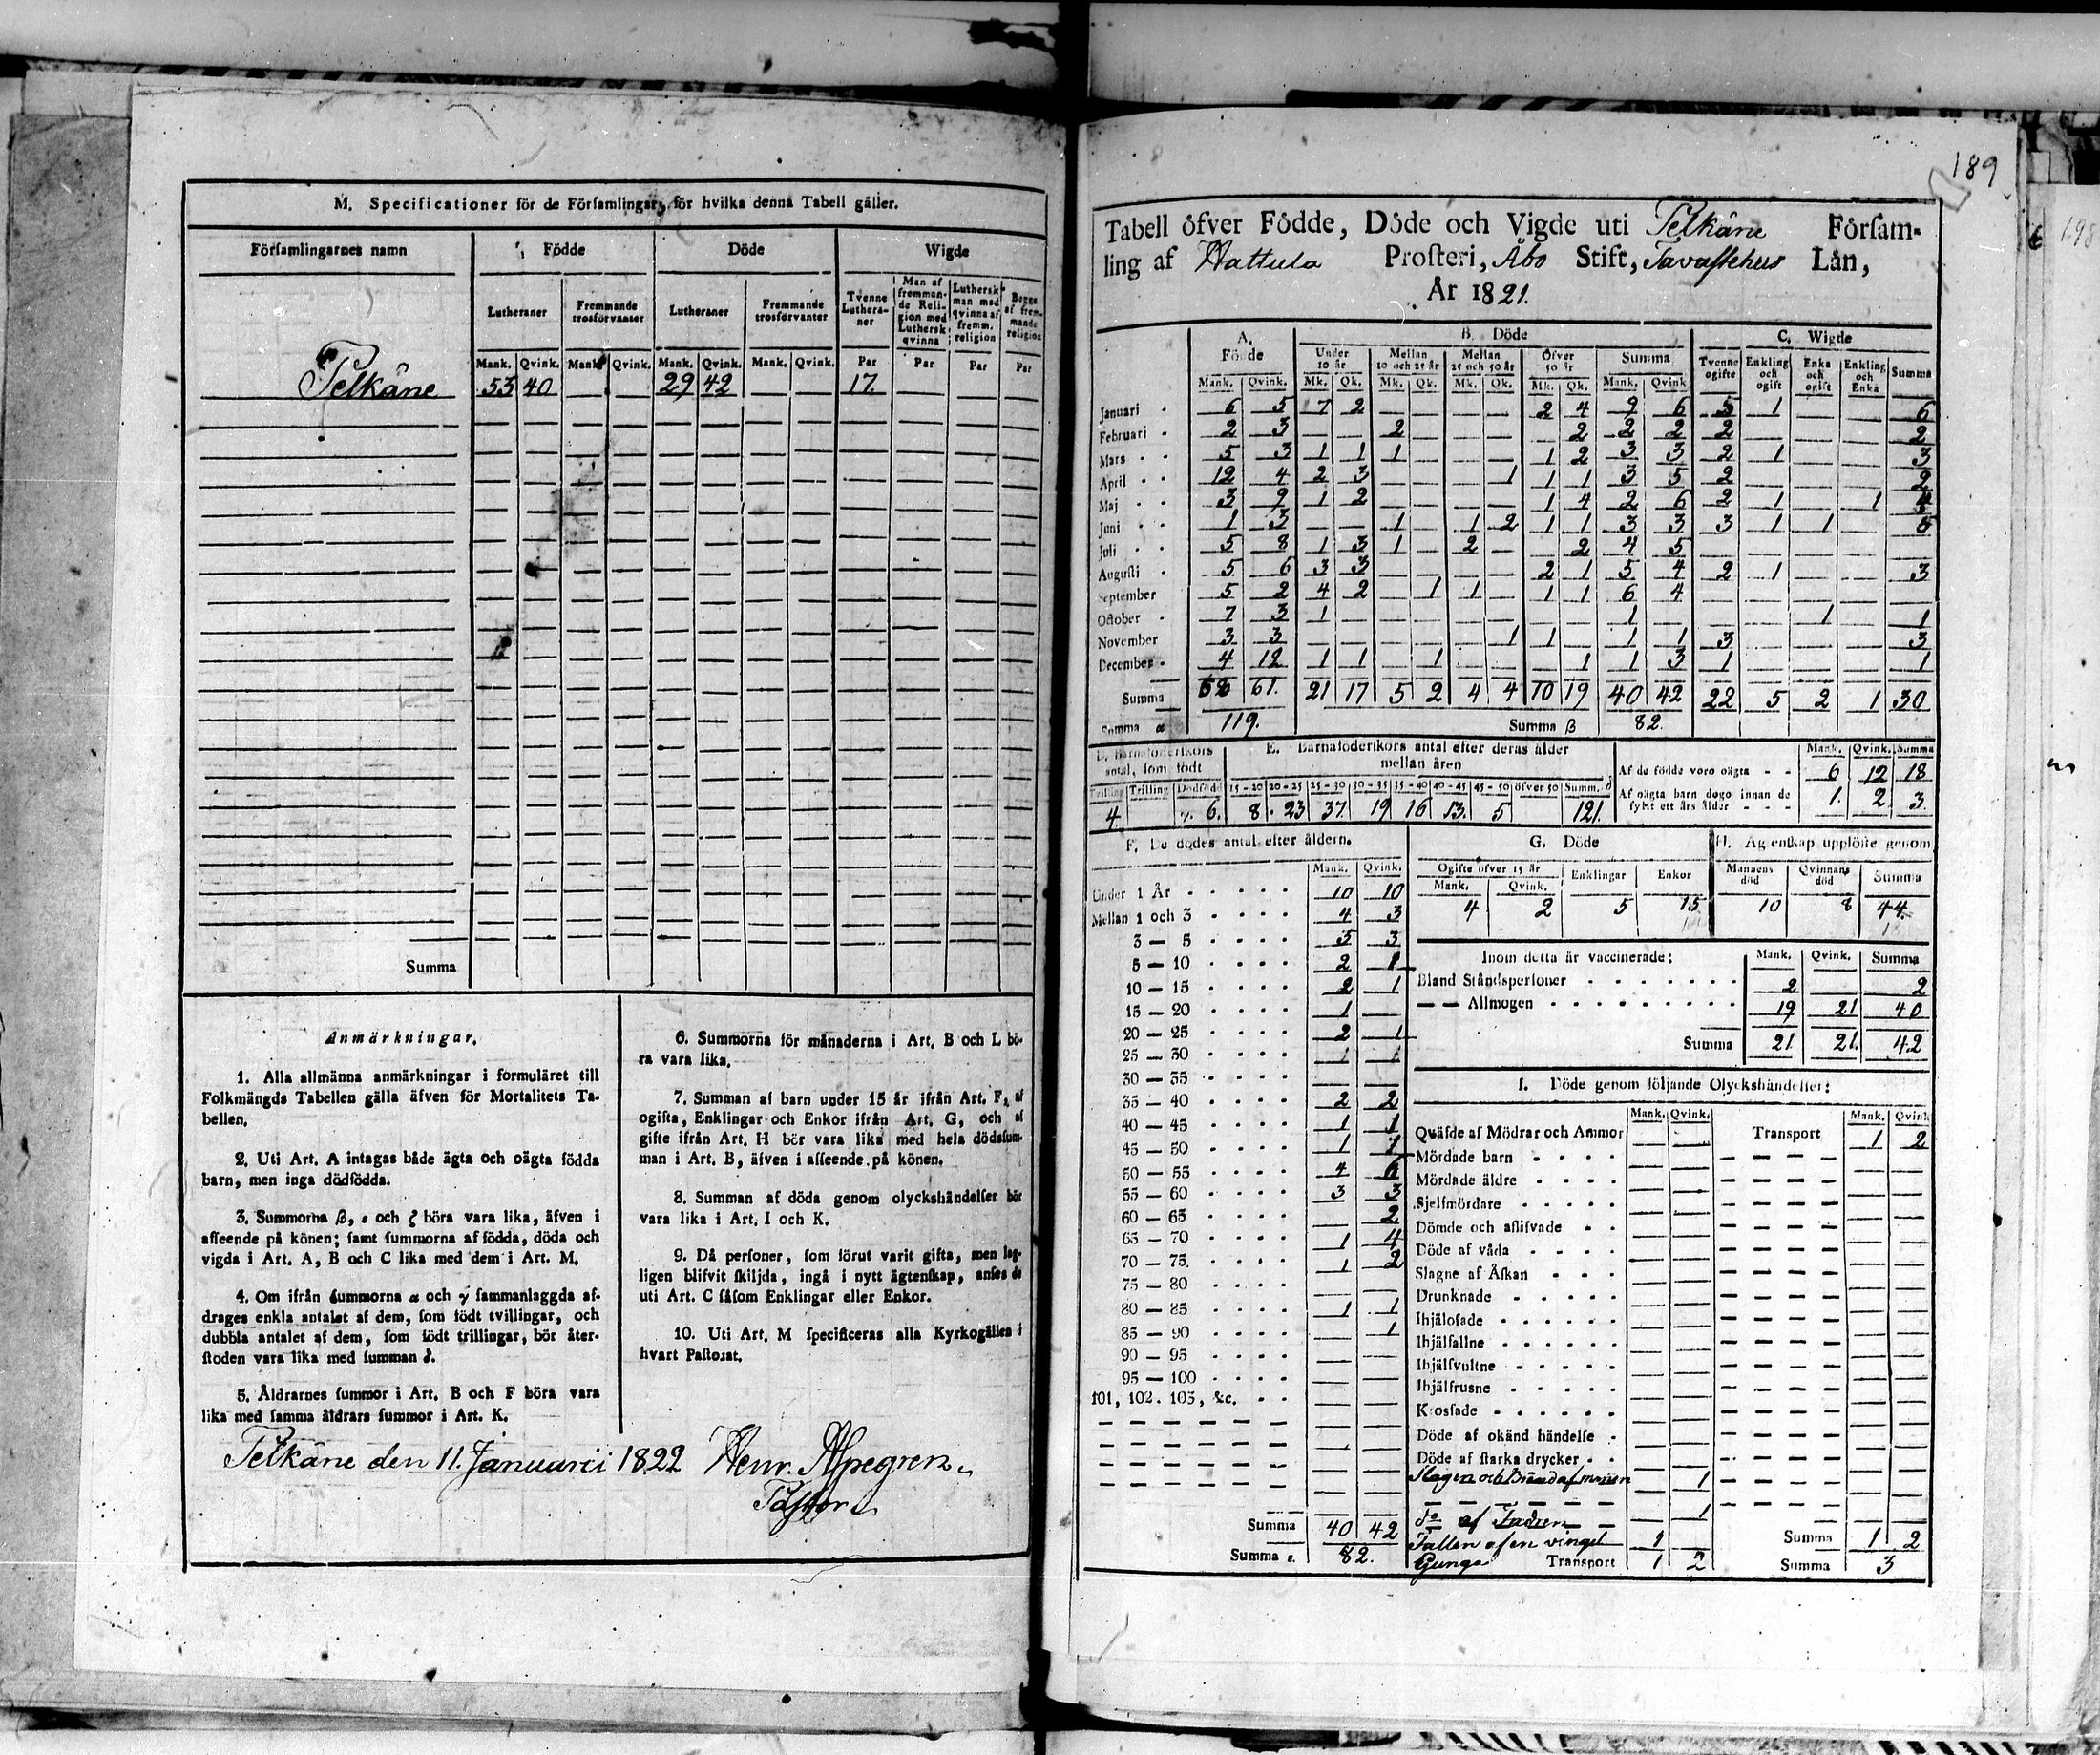 M. Specificationer för de Församlingar, för hvilka denna Tabell gäller.
Församlingarnes namn Födde Döde Wigde
Lutheraner Fremmande trosförvanter Lutheraner Fremmande trosförvanter Tvenne Lutheraner Man af fremmande Religion med Luthersk qvinna Luthersk man med qvinna af fremm. religion Begge af fremmande religion
Mank. Qvink. Mank. Qvink. Mank. Qvink. Mank. Qvink. Par Par Par Par
Pelkäne 53 40 — — 29 42 — — 17. — — —
Summa
Anmärkningar.
1. Alla allmänna anmärkningar i formuläret till
Folkmängds Tabellen gälla äfven för Mortalitets Ta-
bellen.
2. Uti Art. A intagas både ägta och oägta födda
barn, men inga dödfödda.
3. Summorna β, ε och ζ böra vara lika, äfven i
afseende på könen; samt summorna af födda, döda och
vigda i Art. A, B och C lika med dem i Art. M.
4. Om ifrån summorna α och γ sammanlaggda af-
drages enkla antalet af dem, som födt tvillingar, och
dubbla antalet af dem, som födt trillingar, bör åter-
stoden vara lika med summan δ.
5. Åldrarnes summor i Art. B och F böra vara
lika med samma åldrars summor i Art. K.
6. Summorna för månaderna i Art. B och L bö-
ra vara lika.
7. Summan af barn under 15 år ifrån Art. F, af
ogifta, Enklingar och Enkor ifrån Art. G, och af
gifte ifrån Art. H bör vara lika med hela dödsum-
man i Art. B, äfven i afseende på könen.
8. Summan af döda genom olyckshändelser bör
vara lika i Art. I och K.
9. Då personer, som förut varit gifta, men lag-
ligen blifvit skiljda, ingå i nytt ägtenskap, anses de
uti Art. C såsom Enklingar eller Enkor.
10. Uti Art. M specificeras alla Kyrkogällen i
hvart Pastorat.
Pelkäne den 11. Januarii 1822 Henr.
Pastor
189
Tabell öfver Födde, Döde och Vigde uti Pelkäne Försam-
ling af Hattula Prosteri, Åbo Stift, Tavastehus Län,
År 1821.
A. Födde B. Döde C. Wigde
Under 10 år Mellan 10 och 25 år Mellan 25 och 50 år Öfver 50 år Summa Tvenne ogifte Enkling och ogift Enka och ogift Enkling och Enka Summa
Mank. Qvink. Mk. Qk. Mk. Qk. Mk. Qk. Mk. Qk. Mank. Qvink
Januari 6 5 7 2 — — — — 2 4 9 6 5 1 — — 6
Februari 2 3 — — 2 — — — 2 2 2 2 — — — 2
Mars 5 3 1 1 1 — — — 1 2 3 3 2 1 — — 3
April 12 4 2 3 — — — 1 1 1 3 5 2 — — — 2
Maj 3 9 1 2 — — — — 1 4 2 6 2 1 — 1 4
Juni 1 3 — — 1 — 1 2 1 1 3 3 3 1 1 — 5
Juli 5 8 1 3 1 — 2 — — 2 4 5 — — — — —
Augusti 5 6 3 3 — — — — 2 1 5 4 2 1 — — 3
September 5 2 4 2 — 1 1 — 1 1 6 4 — — — — —
October 7 3 1 — — — — — — — 1 — — — 1 — 1
November 3 3 — — — — — 1 1 — 1 1 3 — — — 3
December 4 12 1 1 — 1 — — — 1 1 3 1 — — — 1
Summa 58 61. 21 17 5 2 4 4 10 19 40 42 22 5 2 1 30
Summa α 119. Summa β 82.
D. Barnaföderskors antal, som födt E. Barnaföderskors antal efter deras ålder mellan åren Mank. Qvink. Summa
Tvilling Trilling Dödfödd 15-20 20-25 25-30 30-35 35-40 40-45 45-50 öfver 50 Summ. δ
4. γ. 6. 8. 23 37. 19 16 13. 5 121.
Af de födde voro oägta 6 12 18
Af oägta barn dogo innan de fylst ett års ålder 1. 2. 3.
F. De dödes antal efter åldern.
Mank. Qvink.
Under 1 År 10 10
Mellan 1 och 3 4 3
3 — 5 5 3
5 — 10 2 1
10 — 15 2 1
15 — 20 1 —
20 — 25 2 1
25 — 30 1 1
30 — 35 — —
35 — 40 2 2
40 — 45 1 1
45 — 50 1 1
50 — 55 4 6
55 — 60 3 3
60 — 65 — 2
65 — 70 1 4
70 — 75 1 2
75 — 80 — —
80 — 85 1 1
85 — 90 — 1
90 — 95 — —
95 — 100 — —
101, 102. 103, &c. — —
Summa 40 42
Summa ε. 82.
G. Döde H. Ägtenskap upplöste genom
Ogifte öfver 15 år Enklingar Enkor Mannens död Qvinnans död Summa
Mank. Qvink.
4 2 5 15 10 8 44.
Inom detta år vaccinerade: Mank. Qvink. Summa
Bland Ståndspersoner 2 — 2
— — Allmogen 19 21 40
Summa 21. 21. 42
I. Döde genom följande Olyckshändelser:
Mank. Qvink. Mank. Qvink
Quäfde af Mödrar och Ammor — — Transport 1 2
Mördade barn
Mördade äldre
Sjelfmördare
Dömde och aflifvade
Döde af våda
Slagne af Åskan
Drunknade
Ihjälosade
Ihjälfallne
Ihjälsvultne
Ihjälfrusne
Krossade
Döde af okänd händelse
Döde af starka drycker
Slagen och 1
D:o af 1
Fallen af en vinget 1 Summa 1 2
Gjunga Transport 1 2 Summa 3